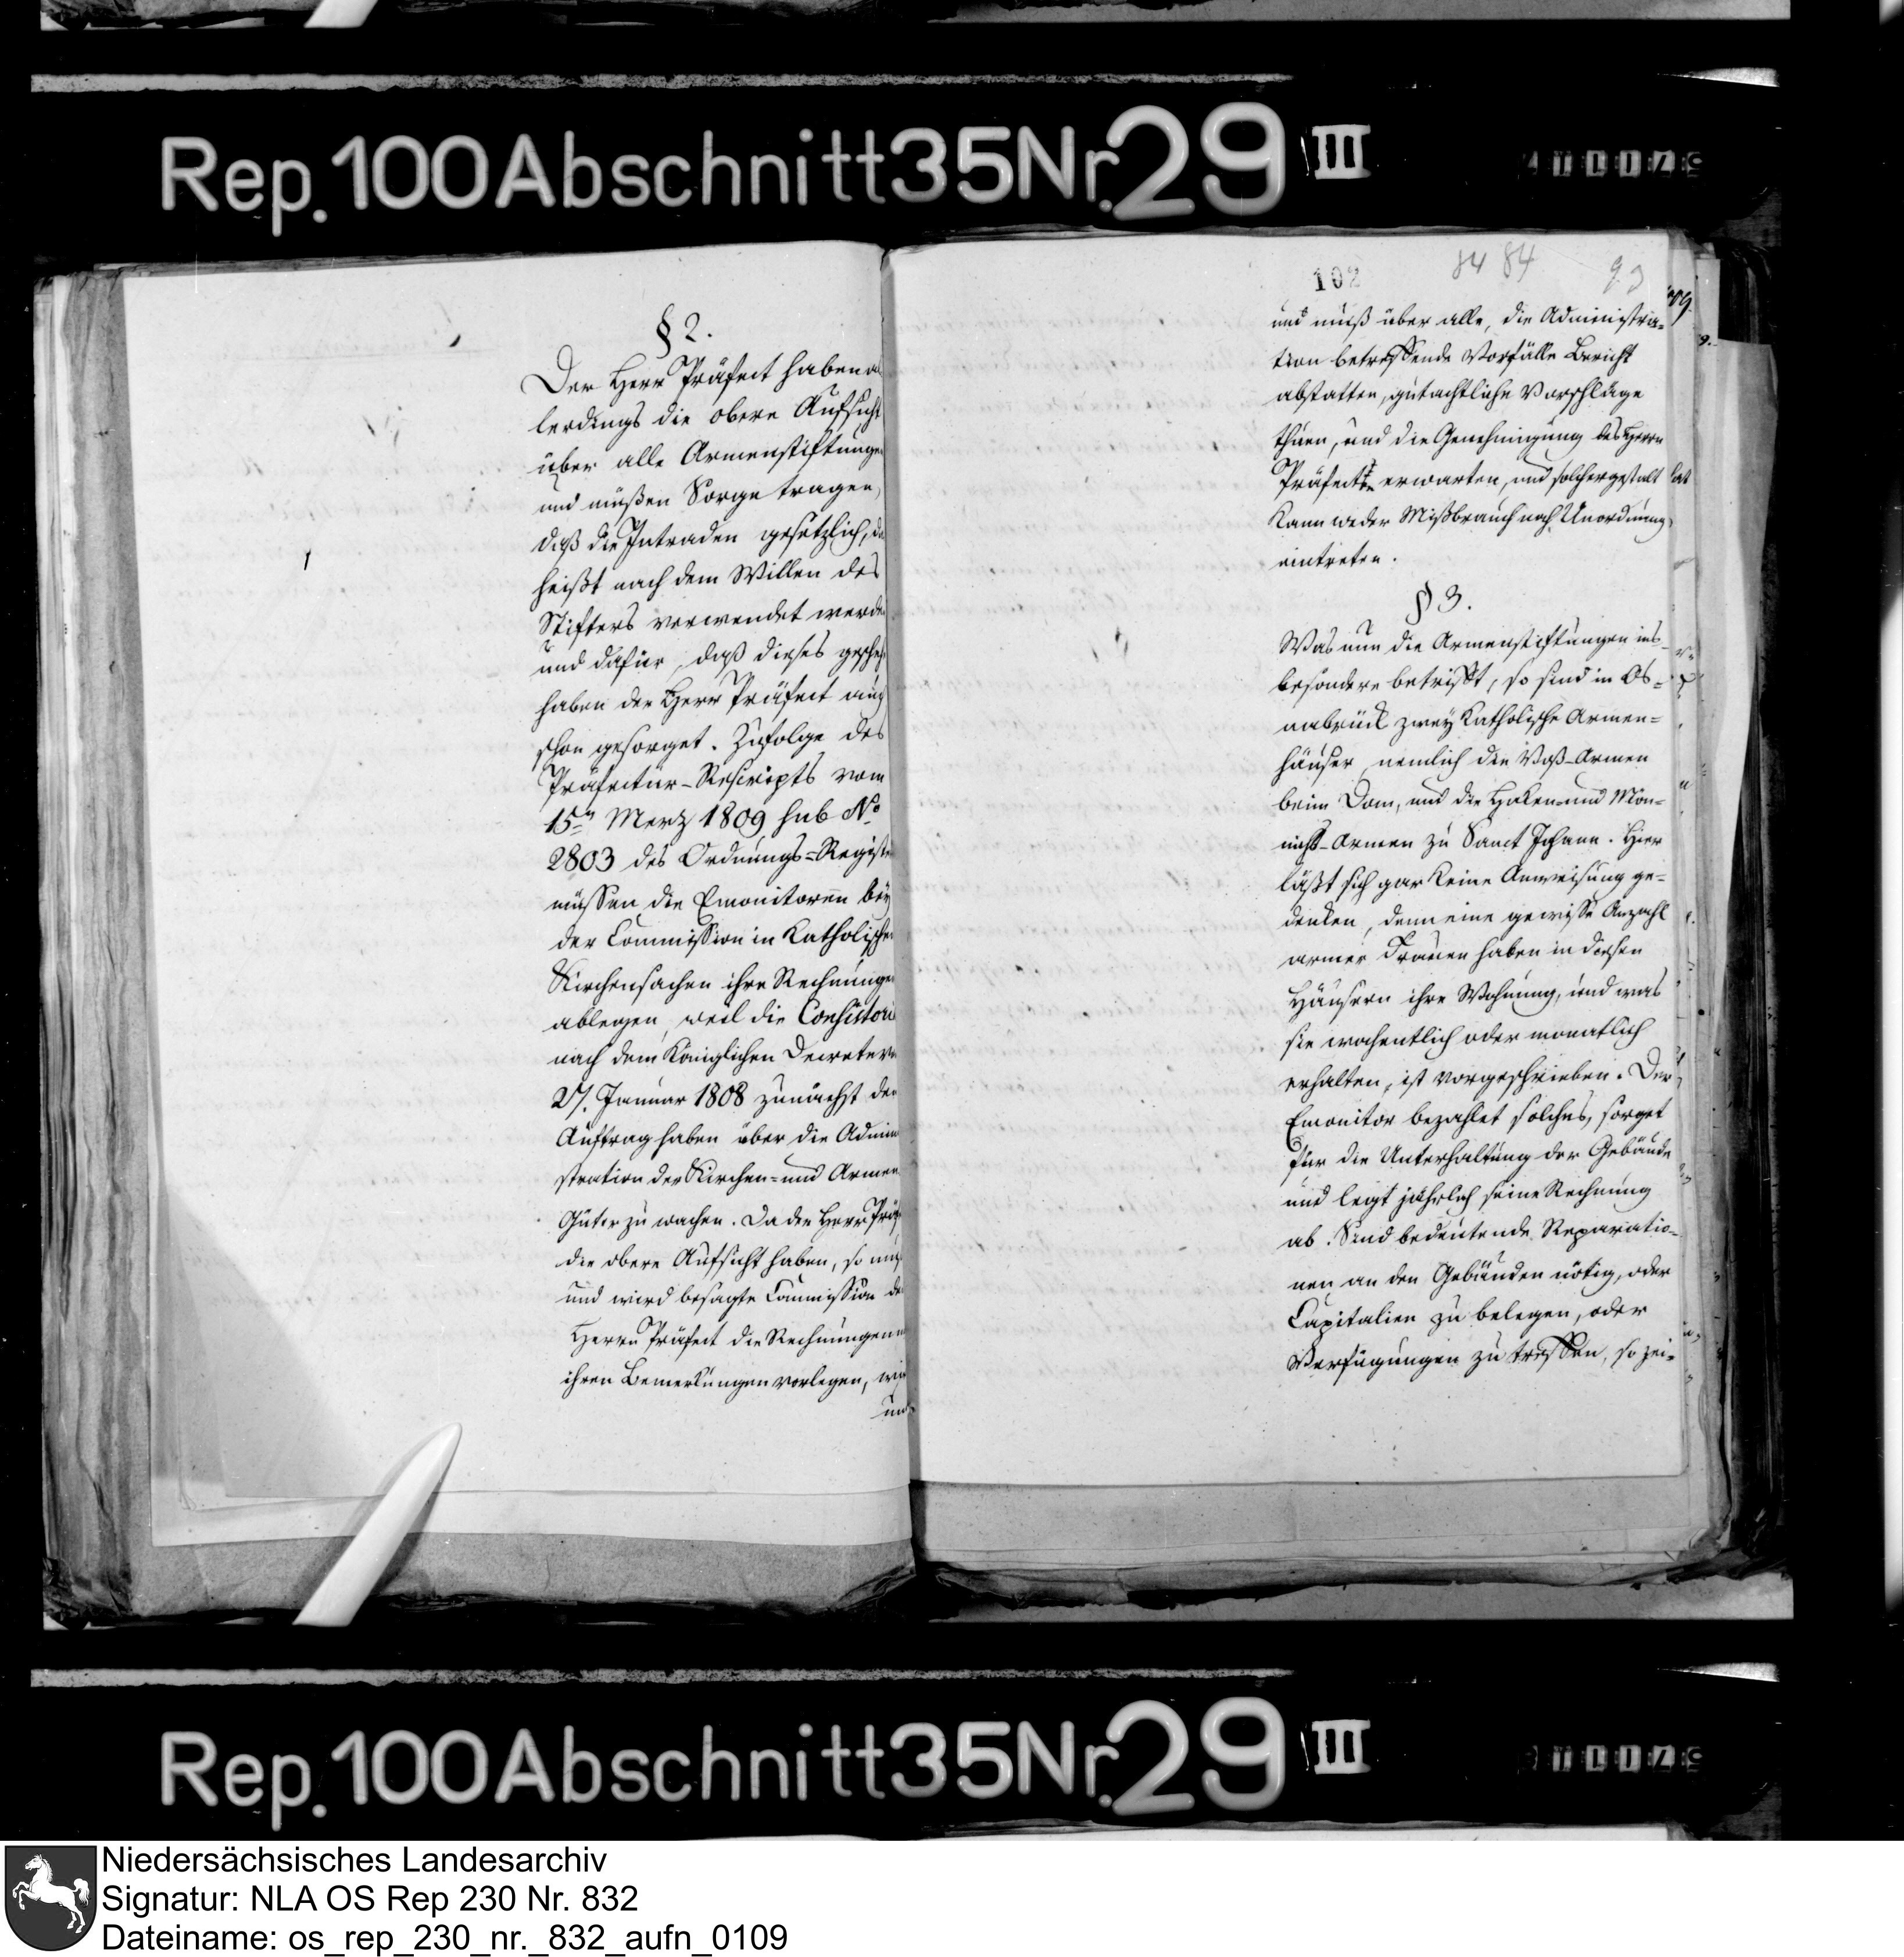 Rep. 100 Abschnitt 35 Nr. 29 III
§ 2.
Der Herr Präfect haben al
lerdings die obere Aufsicht
über alle Armenstiftungen
und müßen Sorge tragen,
daß die Intraden gesetzlich, da
heißt nach dem Willen des
Stifters verwendet werde
und dafür, daß dieses gescheh
haben der Herr Präfect auch
schon gesorget. Zufolge des
Präfectur-Rescripts vom
15n Merz 1809 sub No
2803 des Ordnungs=Registe
müssen die Emonitoren bey
der Commission in Katholische
Kirchensachen ihre Rechnunge
ablegen, weil die Consistori
nach dem Königlichen Decrete v
27. Januar 1808 zunächst den
Auftrag haben über die Admini
stration der Kirchen= und Armen
Güter zu wachen. Da der Herr Präf
die obere Aufsicht haben, so muß
und wird besagte Commission de
Herrn Präfect die Rechnungen m
ihren Bemerkungen vorlegen, wie
und
102 84 84 93
und muß über alle, die Administra=
tion betreffende Vorfälle Bericht
abstatten, gutachtliche Vorschläge
thuen, und die Genehmigung des Herrn
Präfects erwarten, und solchergestalt
kann weder Mißbrauch noch Unordnung
eintreten.
§ 3.
Was nun die Armenstiftungen ins
besondere betrifft, so sind in Os=
nabrück zwey Katholische Armen=
häuser nemlich die Voß-Armen
beim Dom, und die Haken und Mön=
nichs-Armen zu Sanct Johann. Hier
läßt sich gar keine Anweisung ge=
denken, denn eine gewisse Anzahl
armer Frauen haben in diesen
Häusern ihre Wohnung, und was
sie wochentlich oder monatlich
erhalten, ist vorgeschrieben. Der
Emonitor bezahlet solches, sorget
für die Unterhaltung der Gebäude
und legt jährlich seine Rechnung
ab. Sind bedeutende Reparatio=
nen an den Gebäuden nötig, oder
Capitalien zu belegen, oder
Verfügungen zu treffen, so zei=
Rep. 100 Abschnitt 35 Nr. 29 III
Niedersächsisches Landesarchiv
Signatur: NLA OS Rep 230 Nr. 832
Dateiname: os_rep_230_nr._832_aufn_0109